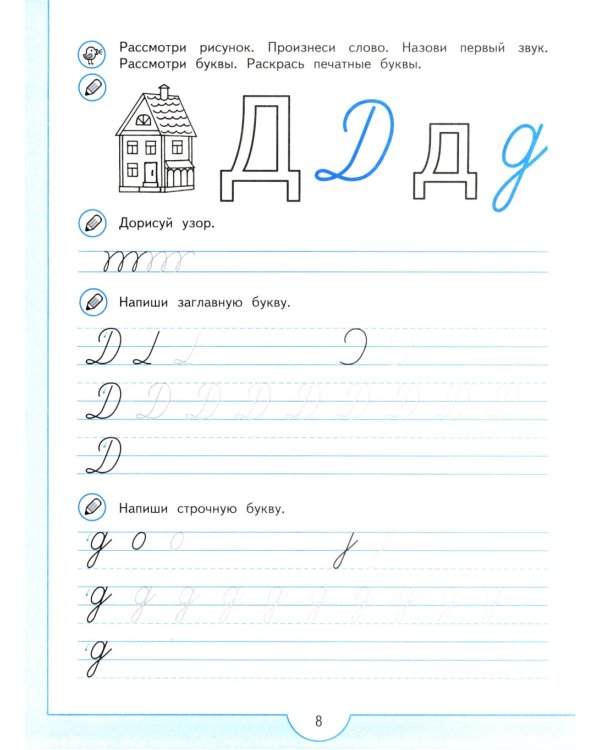 Рассмотри рисунок. Произнеси слово. Назови первый звук.
Рассмотри буквы. Раскрась печатные буквы.
Д Д д д
Дорисуй узор.
Напиши заглавную букву.
Д
Д Д Д Д Д Д Д Д Д
Д
Напиши строчную букву.
д о о
д д д д д д д д д д
д
8